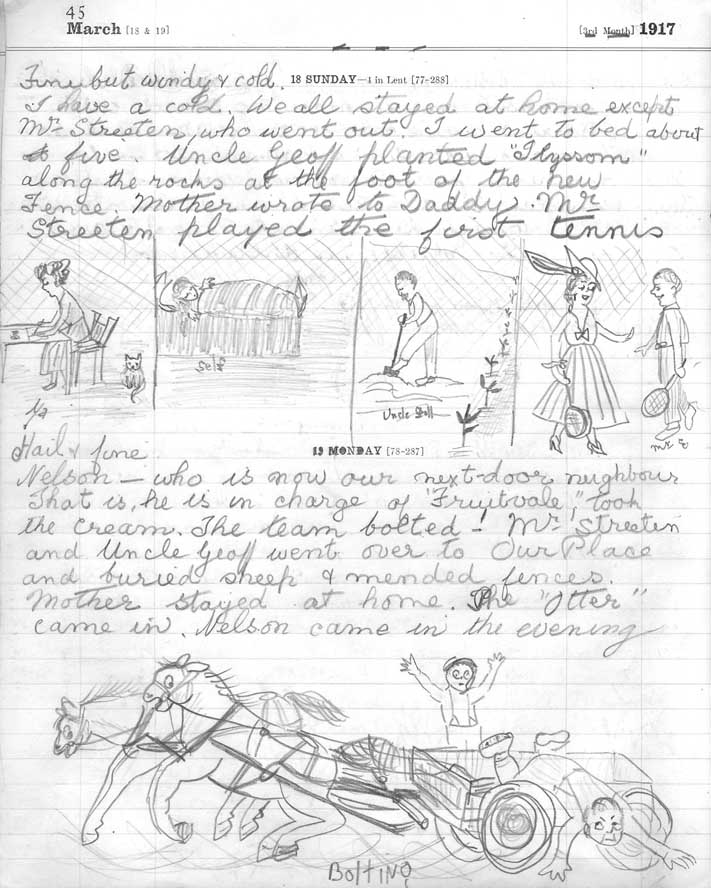 45
March [18 & 19] [3rd Month] 1917
Fine but windy & cold. 18 SUNDAY—4 in Lent [77-288]
I have a cold. We all stayed at home except
Mr Streeten, who went out. I went to bed about
five. Uncle Geoff planted "Ilyssom"
along the rocks at the foot of the new
Fence. Mother wrote to Daddy. Mr
Streeten played the first tennis
Self
Uncle Geoff
Mr S
Hail & fine 19 MONDAY [78-287]
Nelson — who is now our next-door neighbour
That is, he is in charge of "Fruitvale", took
the cream. The team bolted! Mr Streeten
and Uncle Geoff went over to Our Place
and buried sheep & mended fences.
Mother stayed at home. The "Otter"
came in. Nelson came in the evening
Bolting